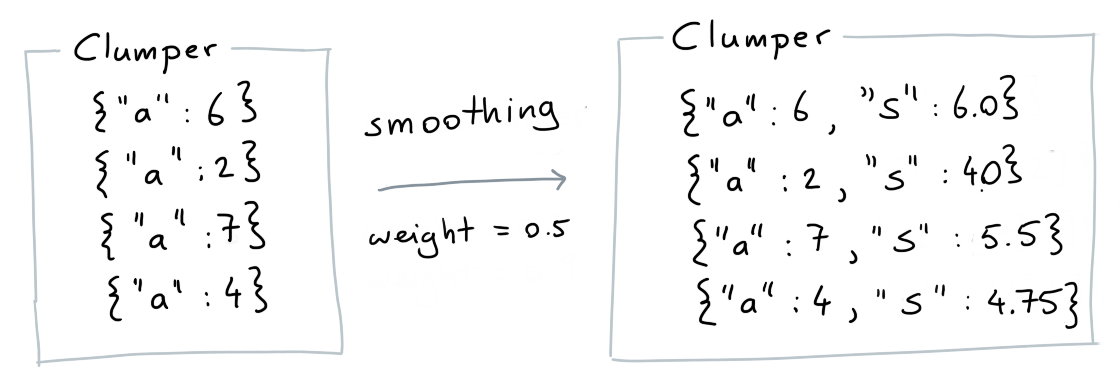 Clumper
{"a" : 6}
{"a" : 2}
{"a" : 7}
{"a" : 4}
smoothing
weight = 0.5
Clumper
{"a" : 6, "s" : 6.0}
{"a" : 2, "s" : 4.0}
{"a" : 7, "s" : 5.5}
{"a" : 4, "s" : 4.75}